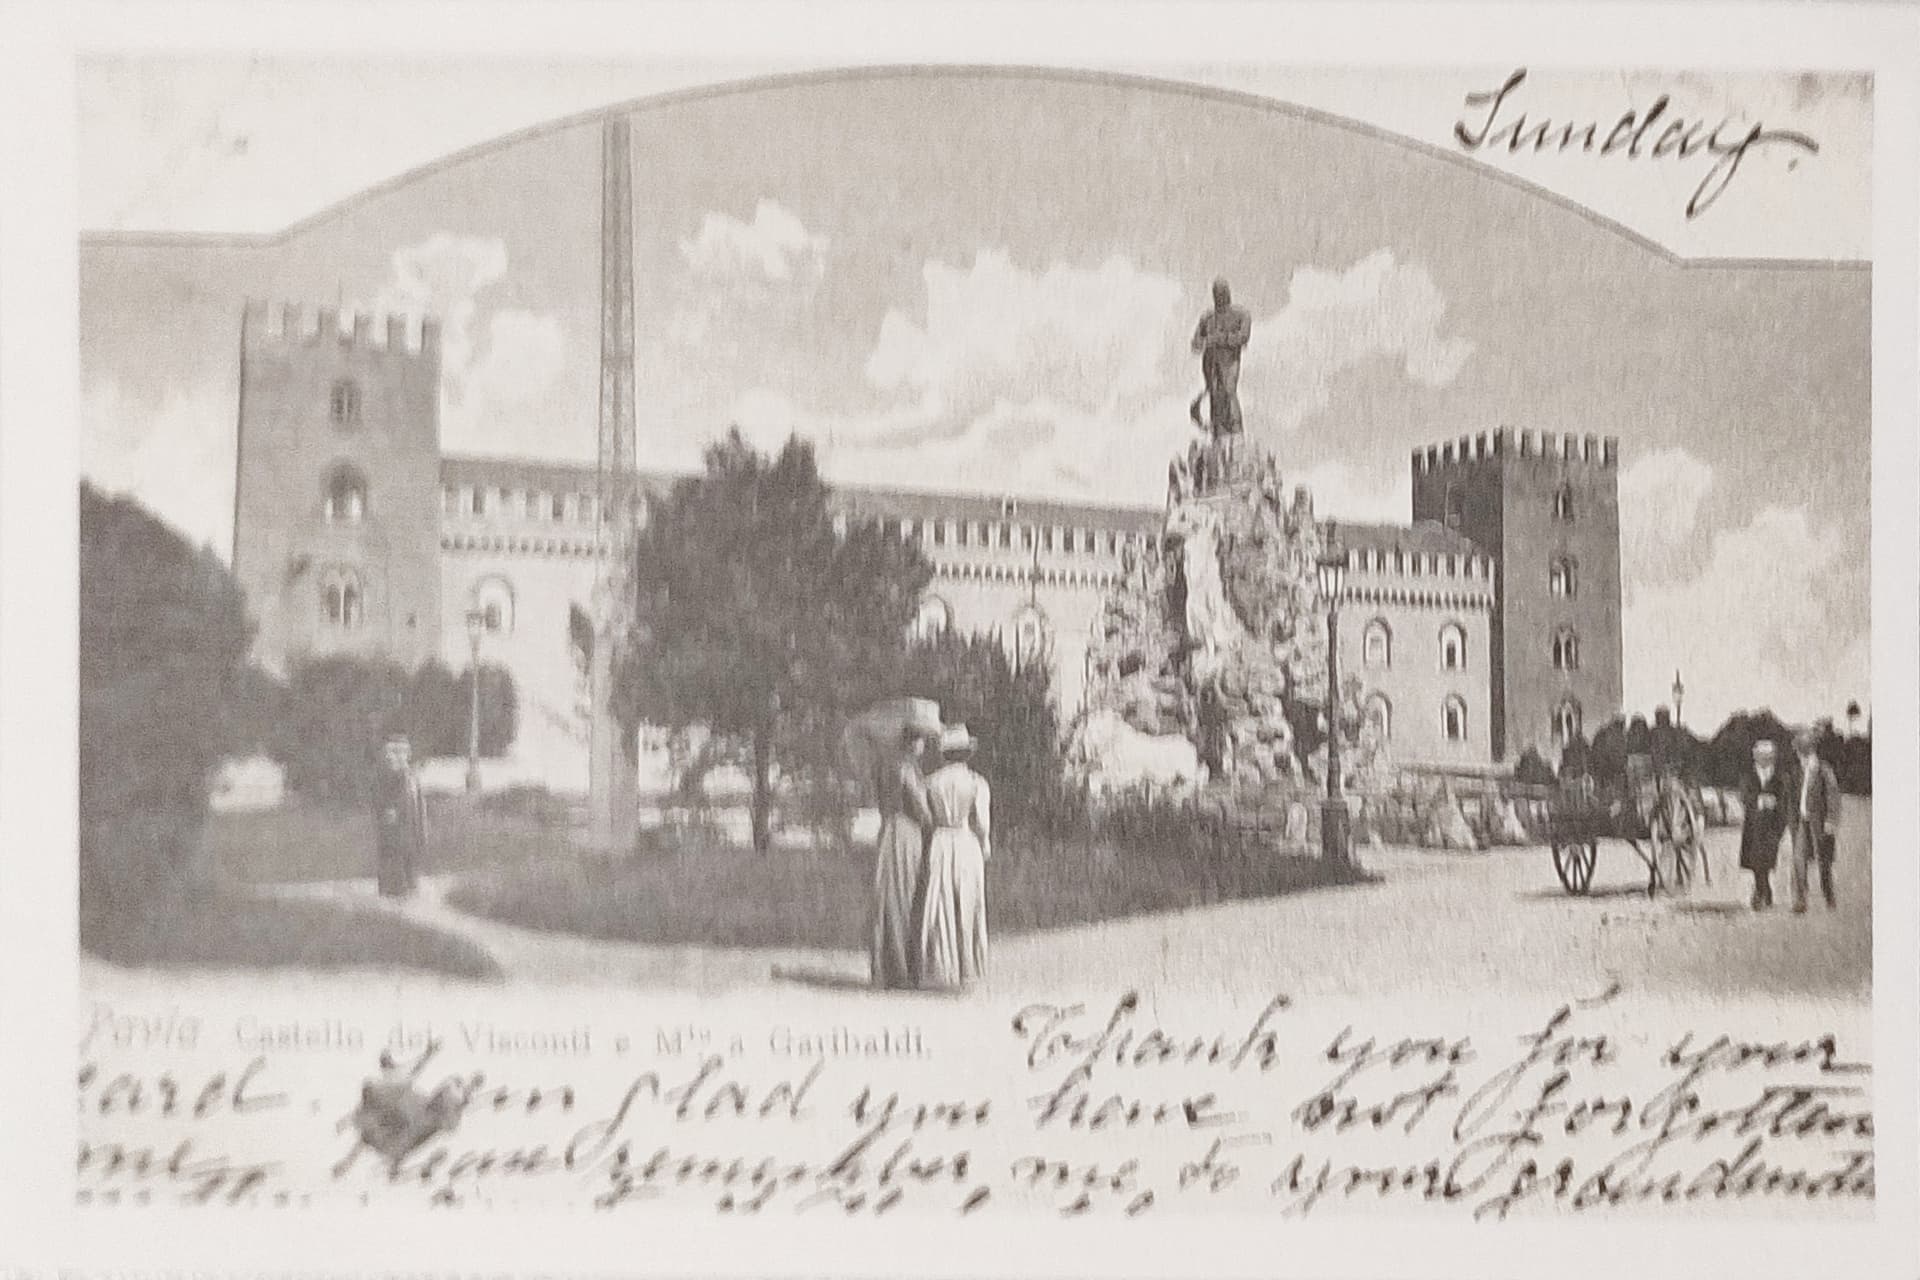 Sunday.
Pavia Castello dei Visconti e Mto a Garibaldi.
Thank you for your
card. I am glad you have not forgotten
me. Please remember me to your grandmother